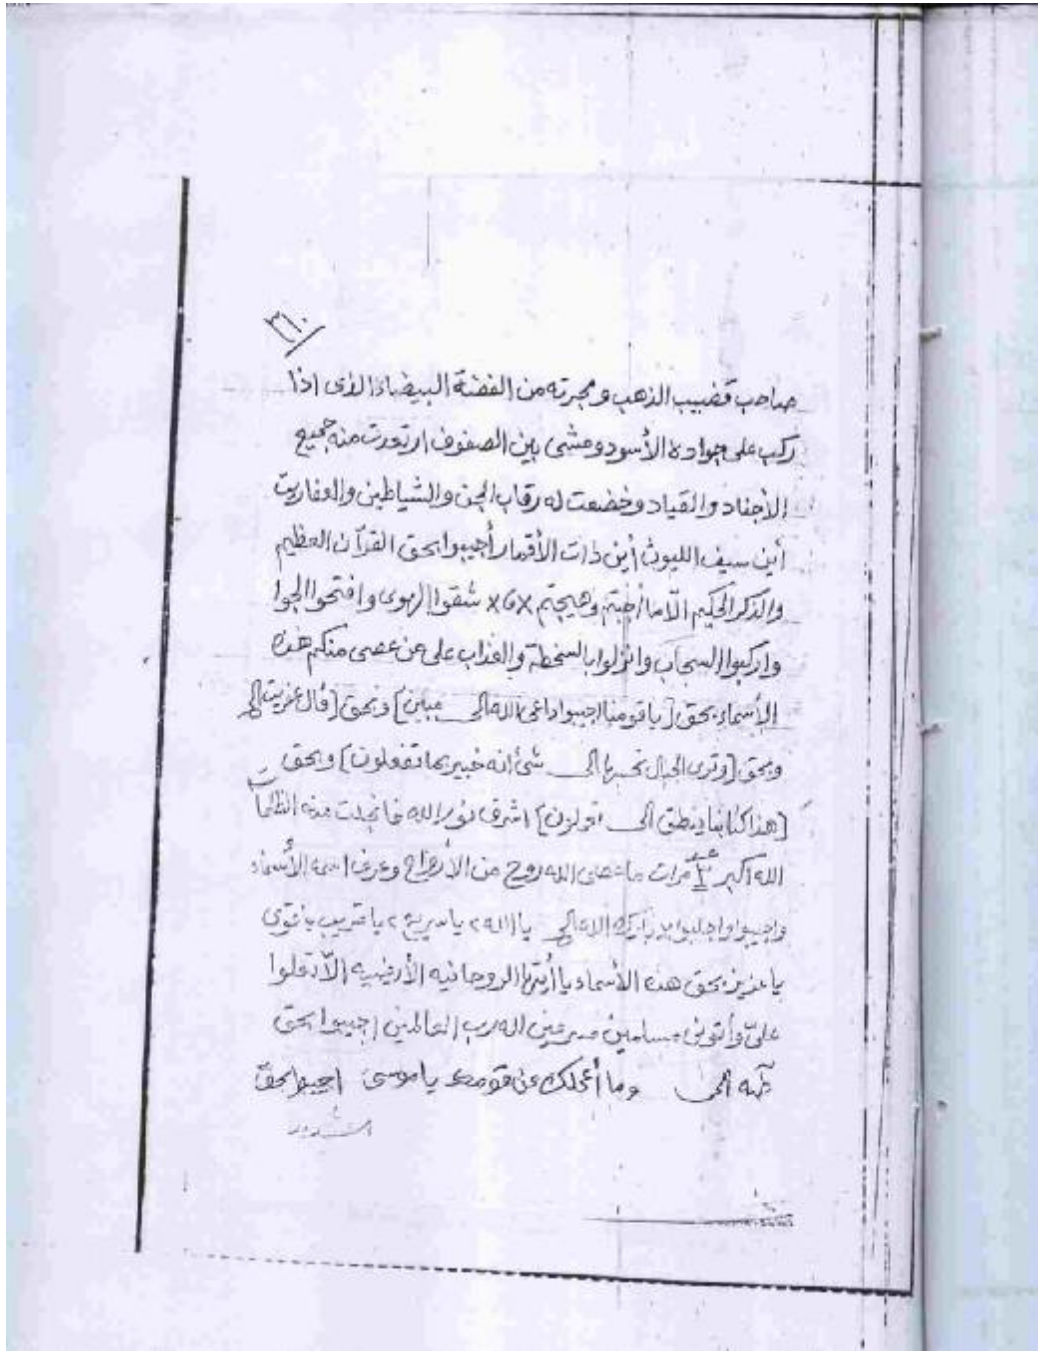 ٣٦٠
صاحب قضيب الذهب ومجرته من الفضة البيضاء الذى اذا
ركب على جواده الأسود ومشى بين الصفوف ارتعدت منه جميع
الأجناد والقياد وخضعت له رقاب الجن والشياطين والعفاريت
أين سيف الليوث أين ذات الأقمار أجيبوا بحق القرآن العظيم
والذكر الحكيم الّا ما أجبتم وهيجتم شقوا الهوى وافتحوا الجوا
واركبوا السحاب وانزلوا بالسخطة والعذاب على من عصى منكم هذه
الأسماء بحق [ياقومنا اجيبوا داعى الله الى مبين] وبحق [قال عفريت الى
وبحق [وترى الجبال تحسبها الى شئ انه خبير بما تفعلون] وبحق
[هذا كتابنا ينطق الى] اشرق نور الله فانجلت منه الظلمات
الله اكبر مرات ما عصى الله روح من الأرواح وعرف اسم الأسماء
واجيبوا يا الله ٢ يا سريع ٢ يا قريب يا قوى
يا عزيز بحق هذه الأسماء يا أيتها الروحانيه الأرضيه الّا تعلوا
علىّ وأتونى مسلمين مسرعين لله رب العالمين اجيبوا بحق
طه الى وما أعجلك عن قومك يا موسى اجيبوا بحق